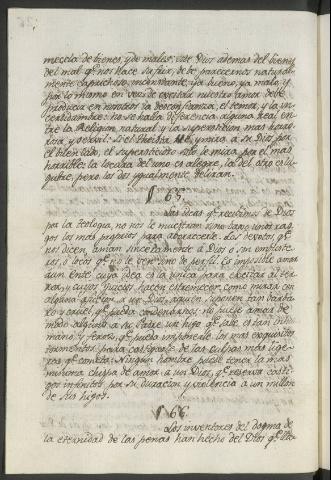 mezcla de bienes, y de males; este Dios ademas del bien, y
del mal qe. nos hace sufrir, debe parecernos natural-
mente caprichoso, inconstante: ya bueno, ya malo; y
por lo mismo en vez de excitar nuestro amor debe
producir en nosotros la desconfianza, el temor, y la in-
certidumbre: no se halla diferencia alguna real en-
tre la Religion natural y la supersticion mas horro-
rosa, y servil: si el Theista mira a su Dios por
el buen lado, el supersticioso solo le mira por el mas
horrible: la locura del uno es alegre, la del otro es lu-
gubre, pero los dos ygualmente deliran.
§ 65.
Las ideas qe. recibimos de Dios
por la teologia, no nos le muestran sino bajo unos ras-
gos los mas propios para aborrecerle. Los devotos, qe.
nos dicen, aman sinceramente a Dios, o son embuste-
ros, o locos qe. no le ven sino de perfil. Es imposible amar
a un Ente cuya idea es la unica para excitar al ter-
ror, y cuyos juicios hacen estremecer: como mirar sin
alguna afliccion a un Dios, a quien suponen tan barba-
ro y cruel, qe. pueda condenarnos: no puede amar de
modo alguno a su Padre un hijo qe. sabe es tan inhu-
mano y feroz, qe. puede imponerle los mas exquisitos
tormentos para castigarle de las culpas mas lige-
ras qe. cometa. Ningun hombre puede tener la mas
minima chispa de amor a un Dios, qe. reserva casti-
gos infinitos por su duracion y violencia a un millon
de sus hijos.
§ 66.
Los inventores del dogma de
la eternidad de las penas han hecho del Dios qe.